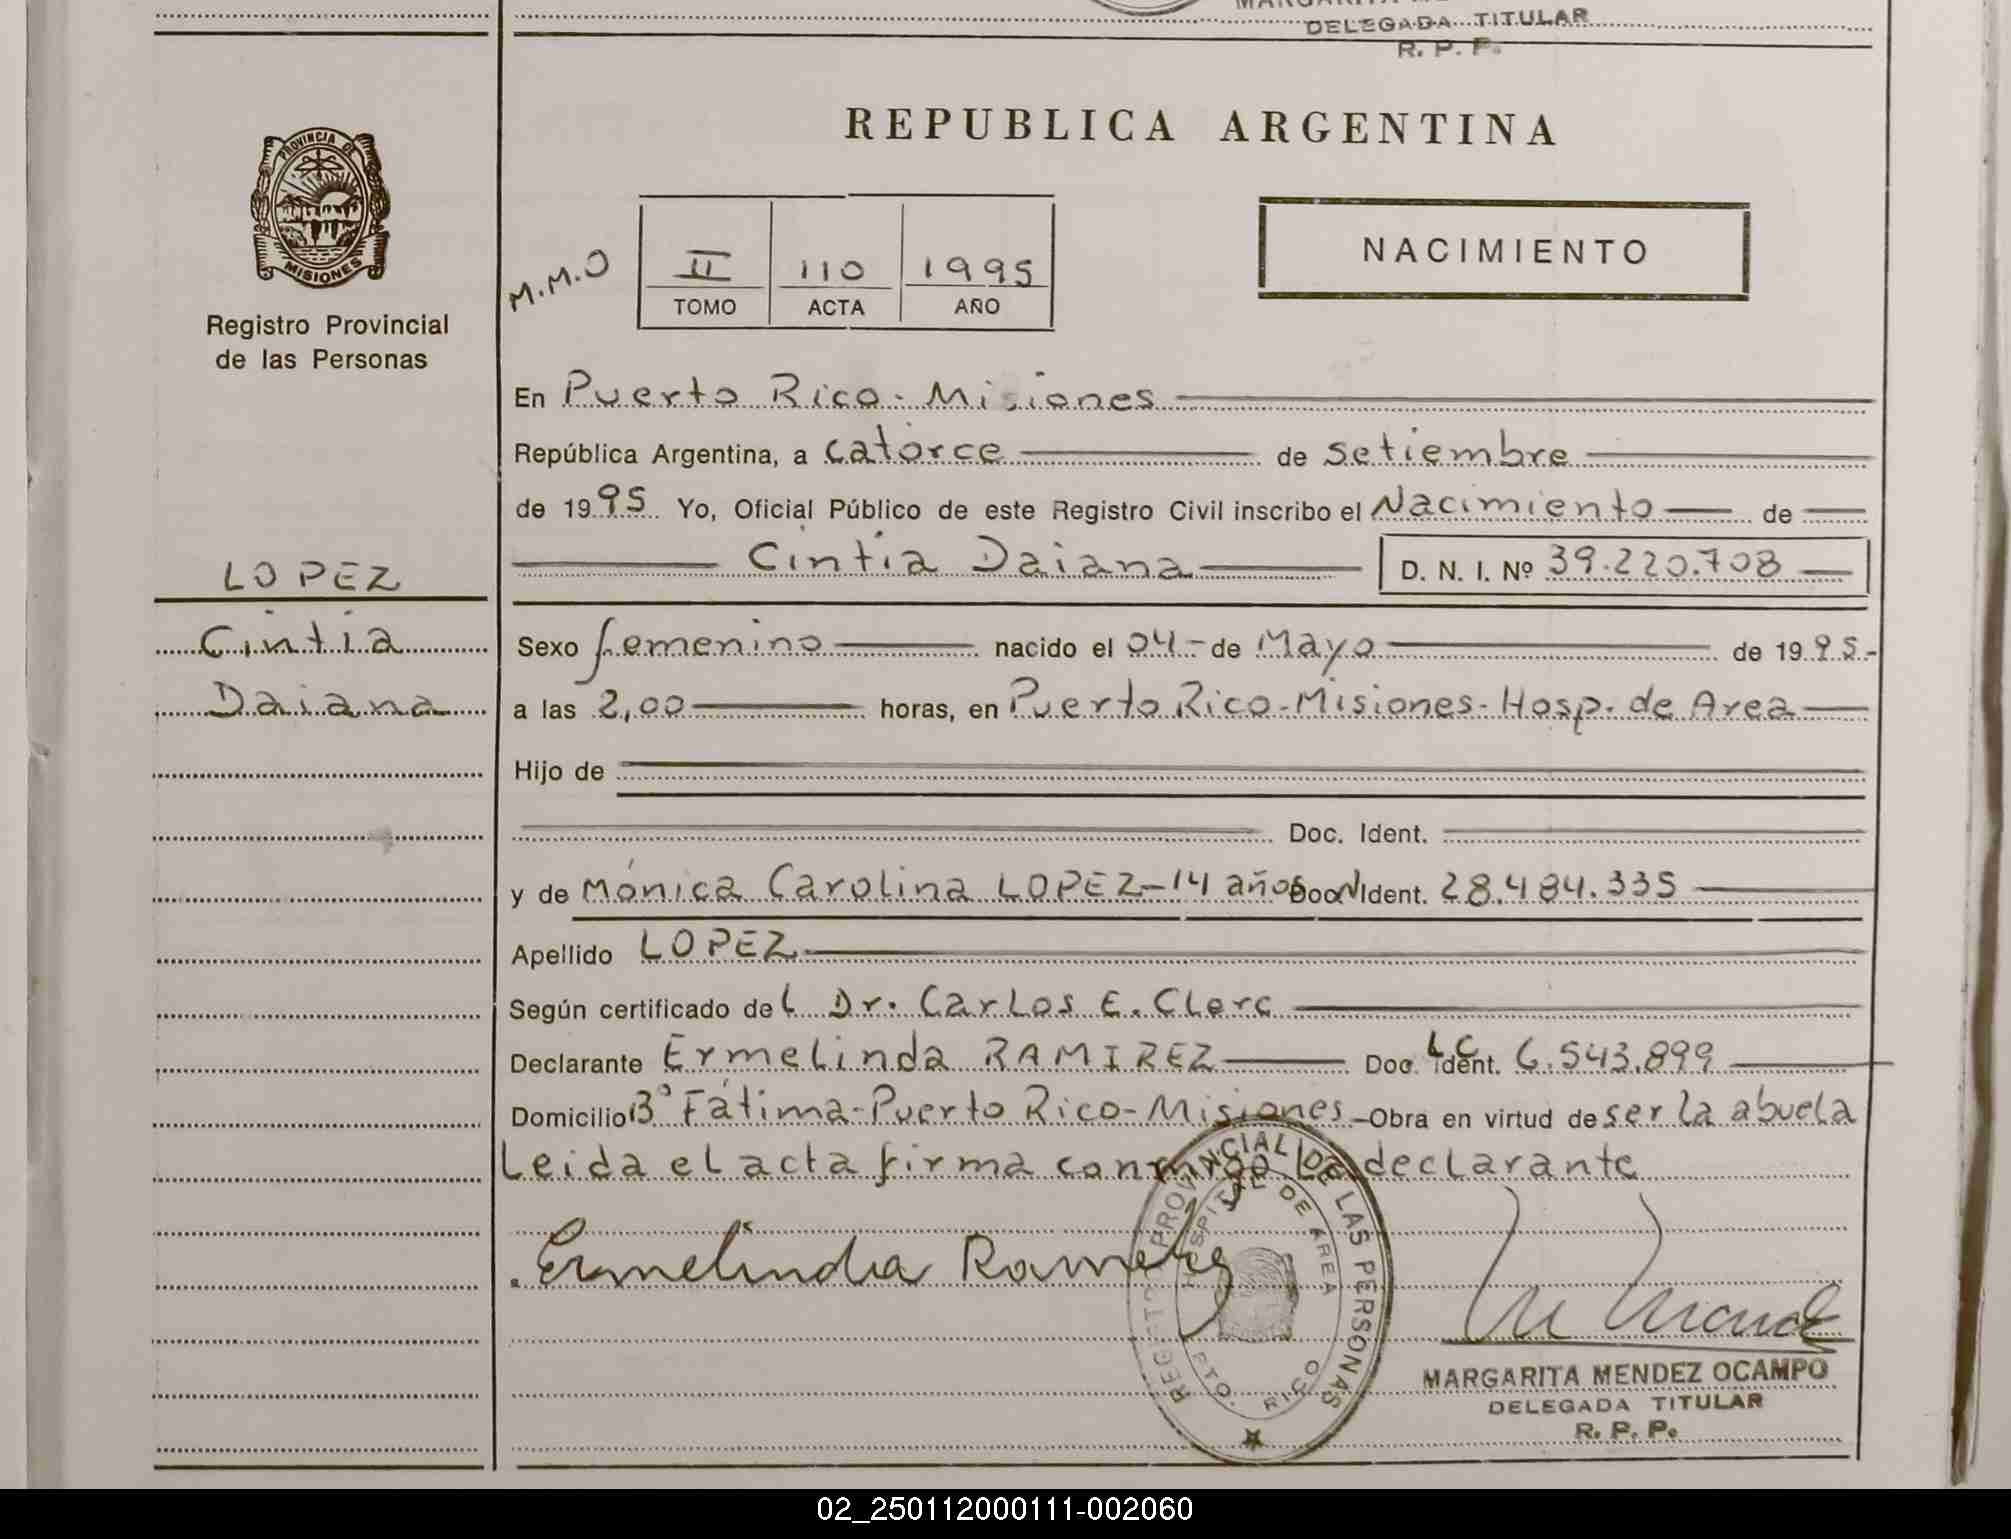 DELEGADA TITULAR
R. P. P.
PROVINCIA DE
MISIONES
Registro Provincial
de las Personas
REPUBLICA ARGENTINA
M.M.O
II 110 1995
TOMO ACTA AÑO
NACIMIENTO
LOPEZ
Cintia
Daiana
En Puerto Rico- Misiones
República Argentina, a catorce de setiembre
de 1995 Yo, Oficial Público de este Registro Civil inscribo el Nacimiento de
Cintia Daiana D. N. I. Nº 39.220.708
Sexo femenino nacido el 04- de Mayo de 1995.-
a las 2,00 horas, en Puerto Rico-Misiones-Hosp. de Area
Hijo de
Doc. Ident.
y de Mónica Carolina LOPEZ-14 años Doc. Ident. 28.484.335
Apellido LOPEZ
Según certificado del Dr. Carlos E. Clerc
Declarante Ermelinda RAMIREZ Doc. Ident. LC 6.543.899
Domicilio Bº Fátima-Puerto Rico-Misiones- Obra en virtud de ser la abuela
Leida el acta firma conmigo la declarante
Ermelinda Ramirez
REGISTRO PROVINCIAL DE LAS PERSONAS
HOSPITAL DE AREA
PTO. RICO
MARGARITA MENDEZ OCAMPO
DELEGADA TITULAR
R. P. P.
02_250112000111-002060